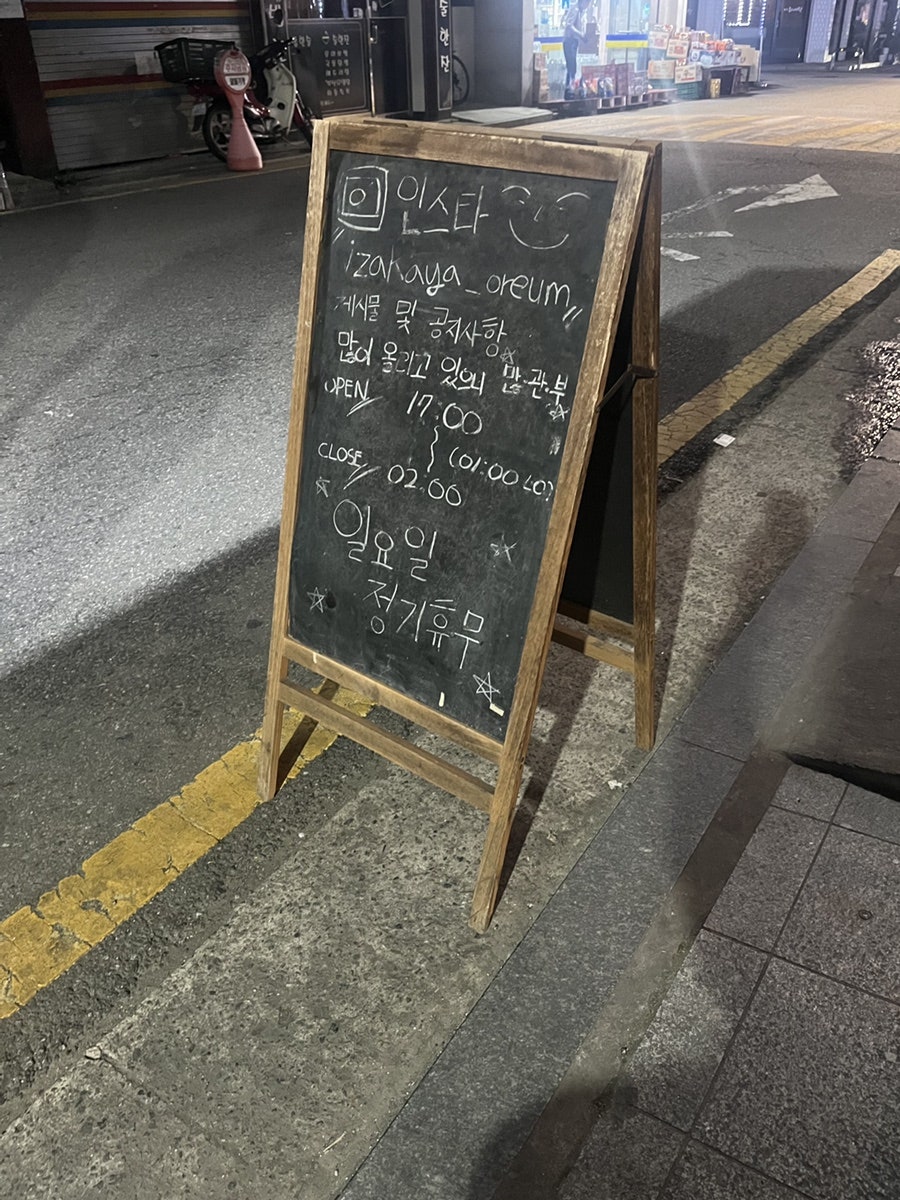 인스타
"izakaya_oreum"
게시물 및 공지사항
많이 올리고 있으니 많·관·부
OPEN 17:00
~ (01:00 LO)
CLOSE 02:00
일요일
정기휴무